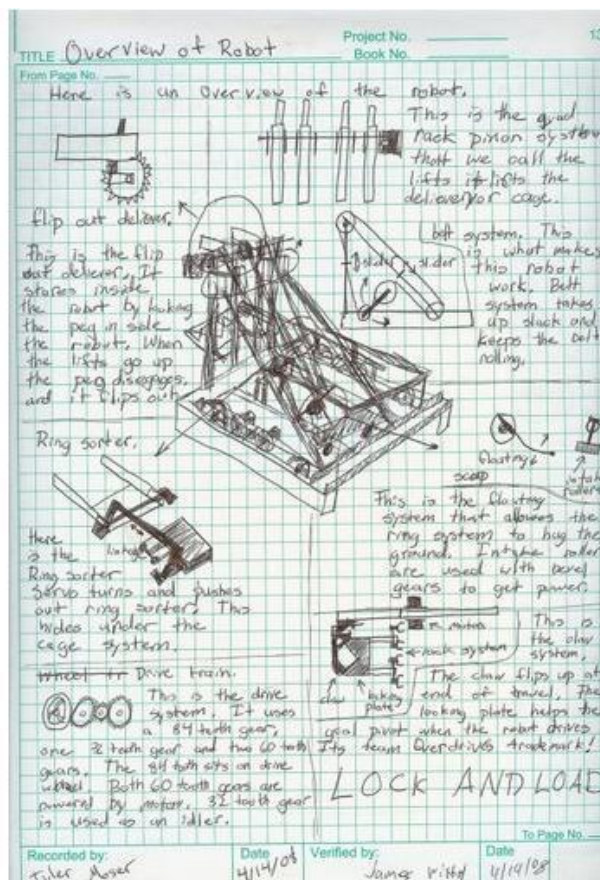 Project No.
13
TITLE Overview of Robot
Book No.
From Page No.
Here is an Overview of the robot.
This is the quad
rack pinion system
that we call the
lifts it lifts the
cage.
flip out deliever.
This is the flip
out deliever. It
stores inside
the robot by hooking
the peg in side
the robot. When
the lifts go up
the peg disengages,
and it flips out
belt system. This
is what makes
this robot
work. Belt
system takes
up slack and
keeps the belt
rolling.
slider
slider
Ring sorter.
floating
scoop
intake
rollers
This is the floating
system that allows the
ring system to hug the
ground. Intake roller
are used with bevel
gears to get power.
linkage
there
is the
Ring sorter
servo turns and pushes
out ring sorter. This
hides under the
cage system.
motor
rack system
claw
locking
plate
This is
the claw
system.
The claw flips up at
end of travel. The
locking plate helps the
goal pivot when the robot drives
Its team Overdrives trademark!
LOCK AND LOAD
Drive train.
This is the drive
system. It uses
a 84 tooth gear,
one 32 tooth gear and two 60 tooth
gears. The 84 tooth sits on drive
wheel. Both 60 tooth gears are
powered by motor. 32 tooth gear
is used as an idler.
To Page No.
Recorded by:
Tyler Moser
Date
4/14/08
Verified by:
James
Date
4/19/08